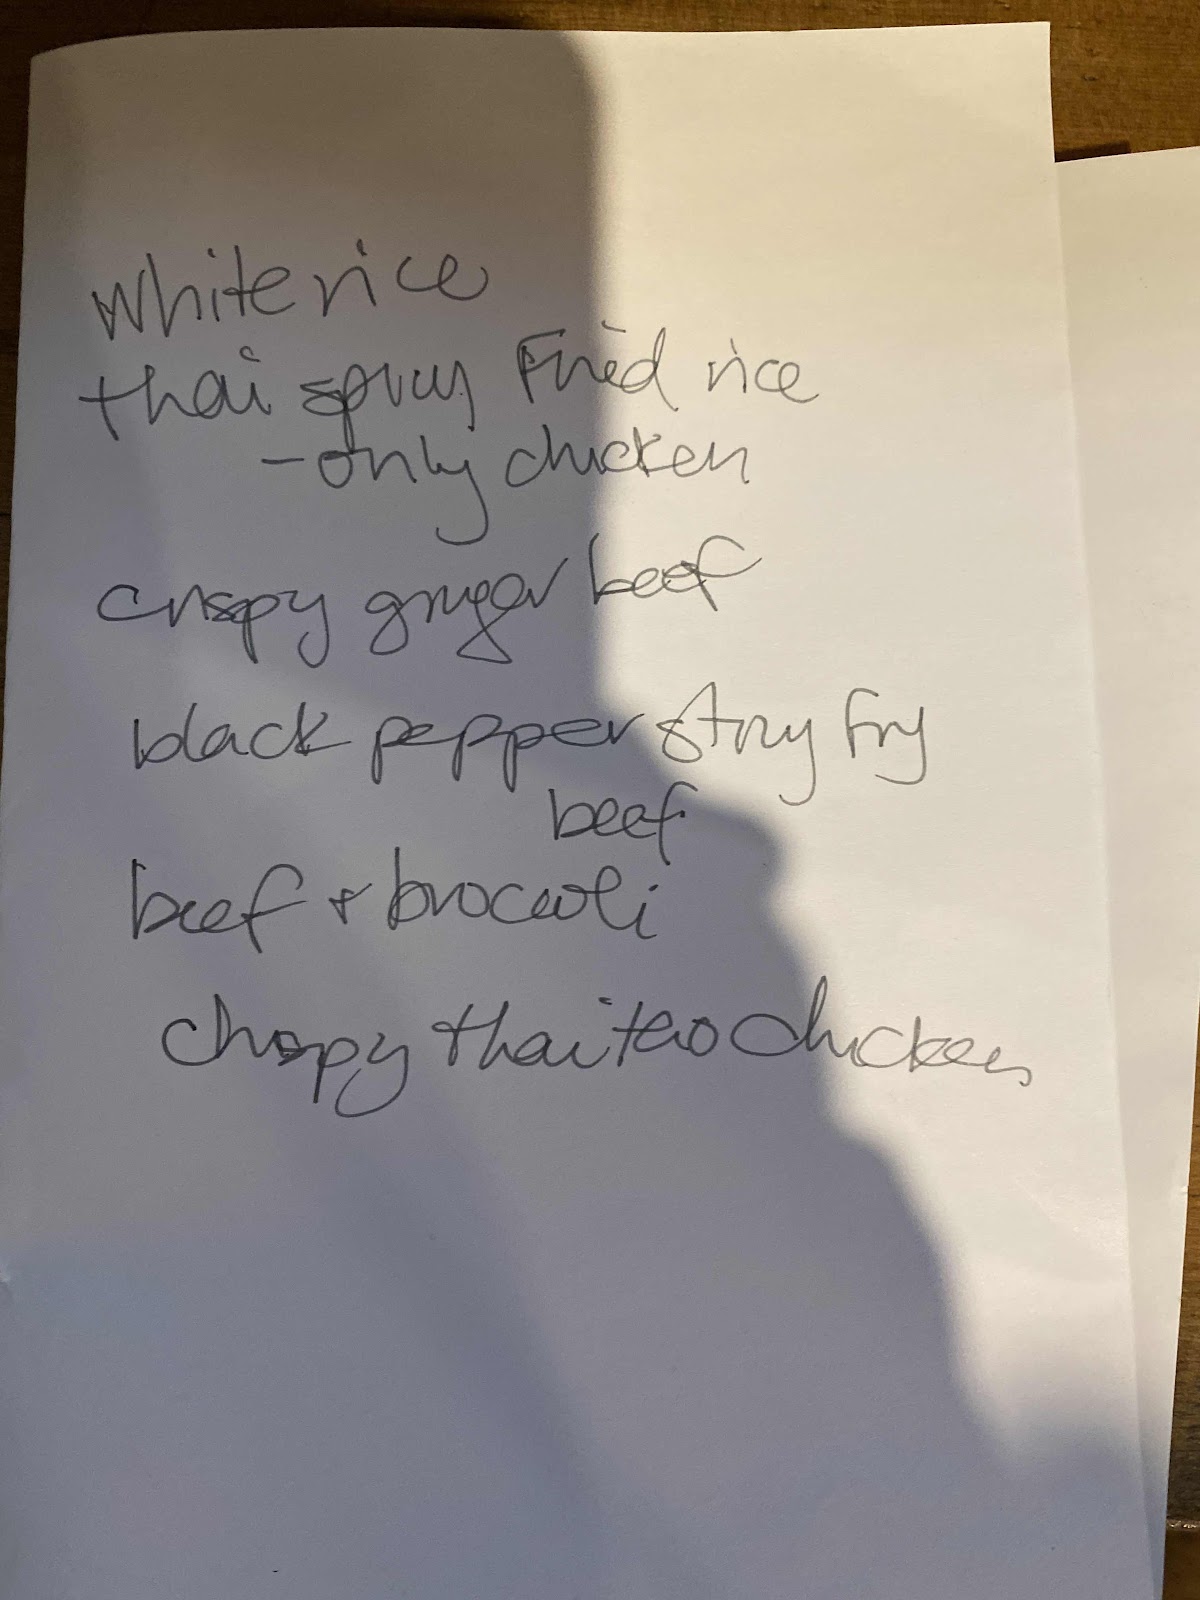 white rice
thai spicy Fried rice
- only chicken
crispy ginger beef
black pepper stiry fry
beef
beef + broccoli
chrispy thai tao chicken